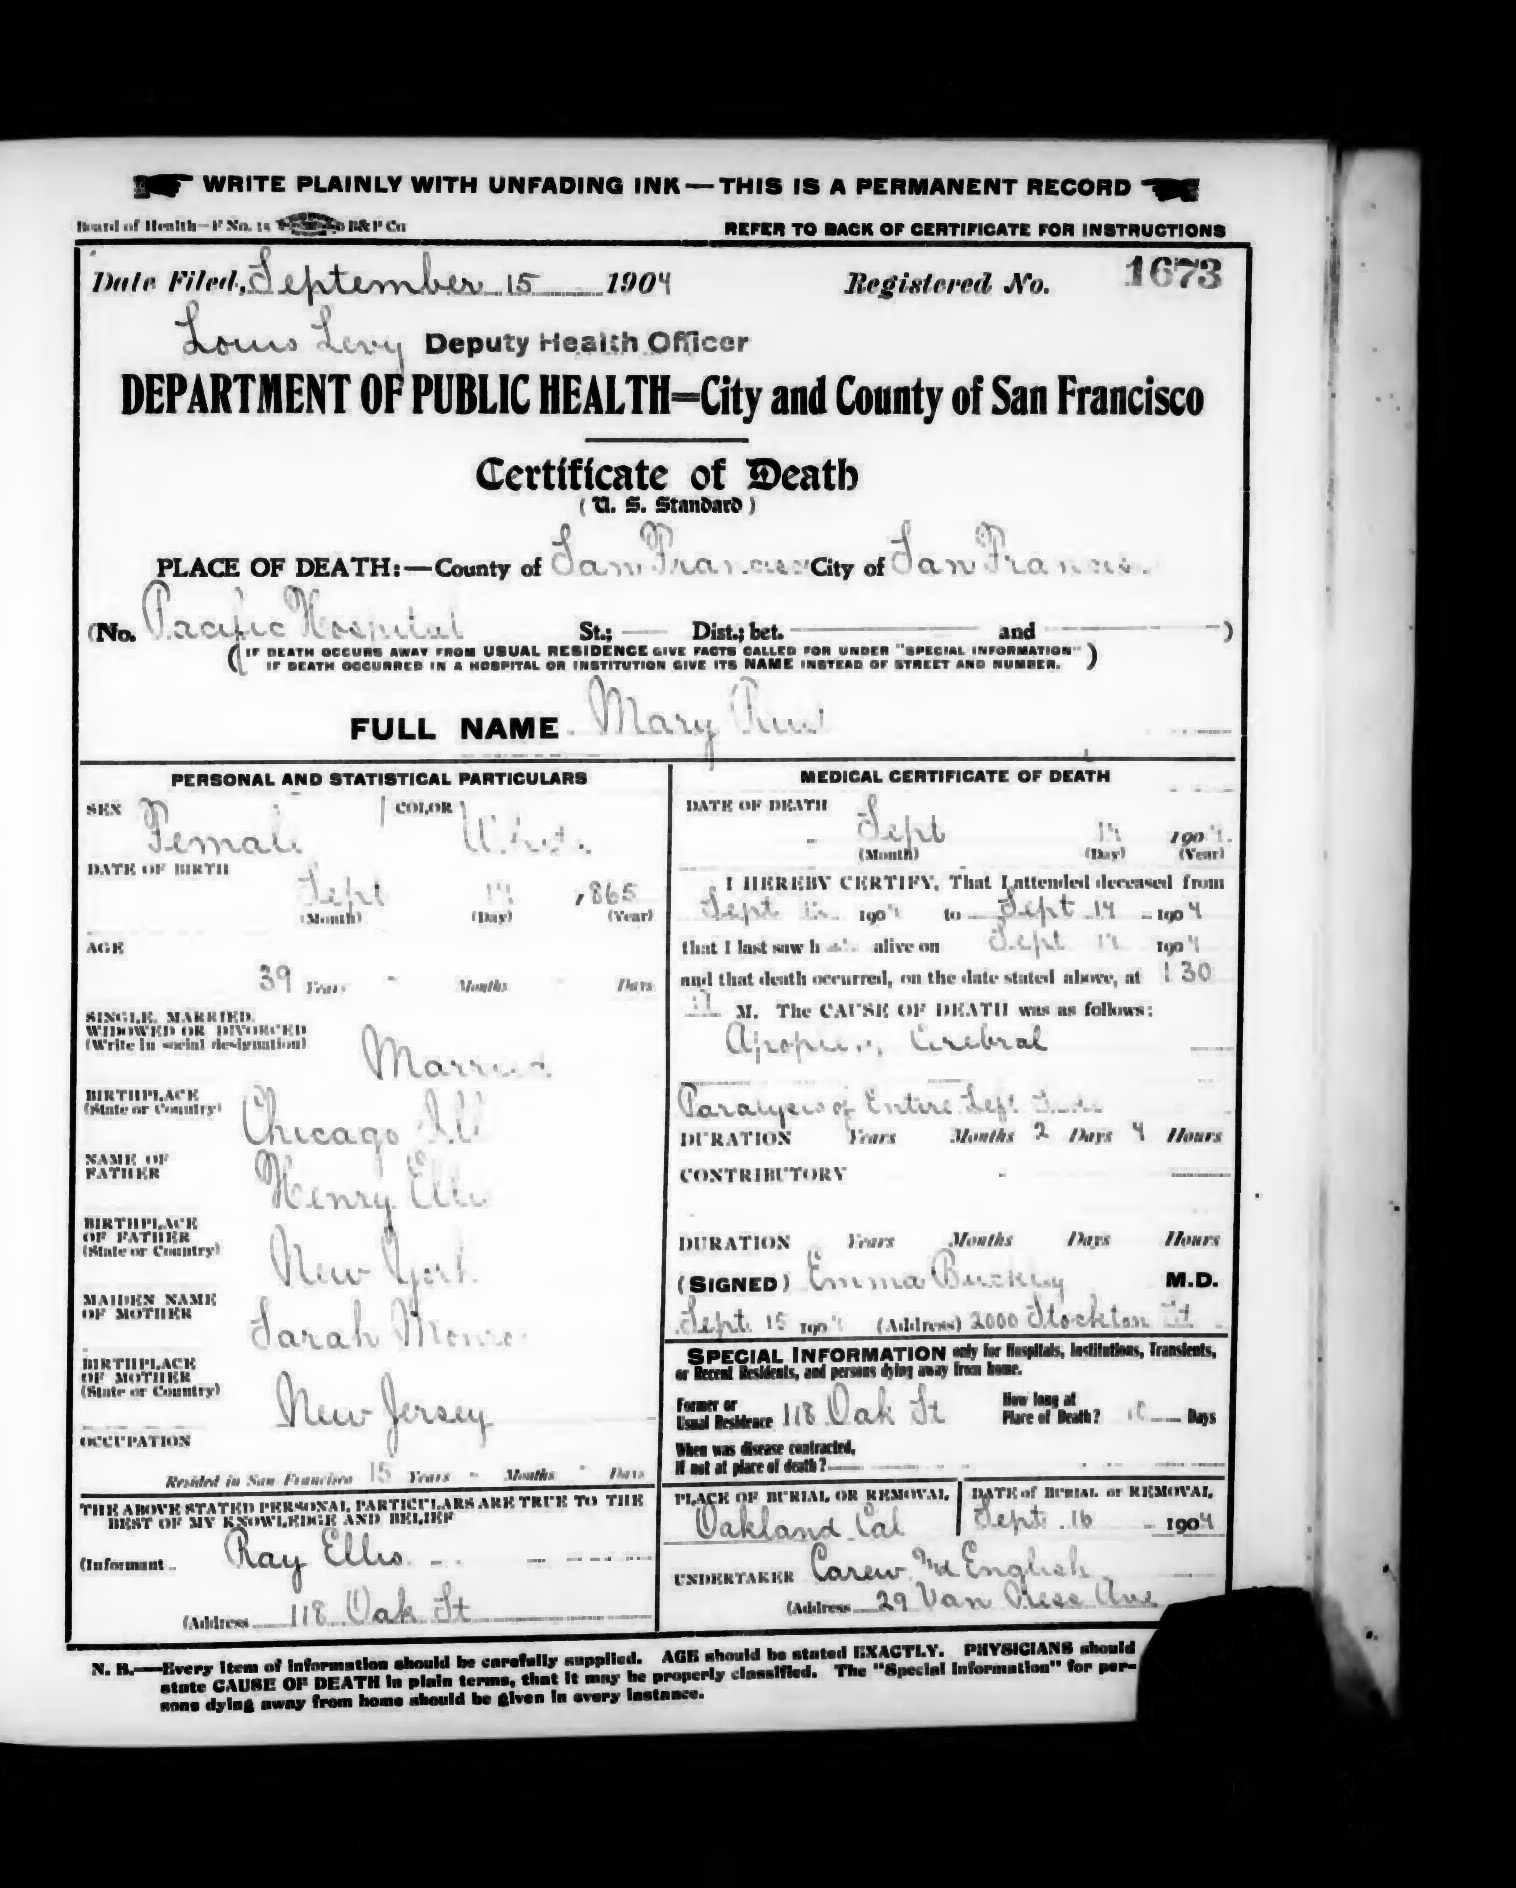 WRITE PLAINLY WITH UNFADING INK—THIS IS A PERMANENT RECORD
Board of Health—F No. 15 B&P Co
REFER TO BACK OF CERTIFICATE FOR INSTRUCTIONS
Date Filed, September 15 1904 Registered No. 1673
Louis Levy Deputy Health Officer
DEPARTMENT OF PUBLIC HEALTH=City and County of San Francisco
Certificate of Death
(U. S. Standard)
PLACE OF DEATH:—County of San Francisco City of San Francisco
(No. Pacific Hospital St.; Dist.; bet. and )
(IF DEATH OCCURS AWAY FROM USUAL RESIDENCE GIVE FACTS CALLED FOR UNDER "SPECIAL INFORMATION"
IF DEATH OCCURRED IN A HOSPITAL OR INSTITUTION GIVE ITS NAME INSTEAD OF STREET AND NUMBER.)
FULL NAME Mary
PERSONAL AND STATISTICAL PARTICULARS
SEX Female COLOR White
DATE OF BIRTH
Sept 14 1865
(Month) (Day) (Year)
AGE
39 Years - Months - Days
SINGLE, MARRIED,
WIDOWED OR DIVORCED
(Write in social designation)
Married
BIRTHPLACE
(State or Country)
Chicago Ill
NAME OF
FATHER
Henry Ellis
BIRTHPLACE
OF FATHER
(State or Country)
New York
MAIDEN NAME
OF MOTHER
Sarah Monroe
BIRTHPLACE
OF MOTHER
(State or Country)
New Jersey
OCCUPATION
Resided in San Francisco 15 Years - Months - Days
THE ABOVE STATED PERSONAL PARTICULARS ARE TRUE TO THE
BEST OF MY KNOWLEDGE AND BELIEF
(Informant Ray Ellis
(Address 118 Oak St
MEDICAL CERTIFICATE OF DEATH
DATE OF DEATH
Sept 14 1904
(Month) (Day) (Year)
I HEREBY CERTIFY, That I attended deceased from
Sept 1904 to Sept 14 1904
that I last saw h alive on Sept 14 1904
and that death occurred, on the date stated above, at 1 30
M. The CAUSE OF DEATH was as follows:
Apoplexy, Cerebral
Paralysis of Entire Left Side
DURATION Years Months 2 Days 4 Hours
CONTRIBUTORY -
DURATION Years Months Days Hours
(SIGNED) Emma Buckley M.D.
Sept 15 1904 (Address) 2000 Stockton St
SPECIAL INFORMATION only for Hospitals, Institutions, Transients,
or Recent Residents, and persons dying away from home.
Former or
Usual Residence 118 Oak St
How long at
Place of Death? Days
When was disease contracted,
If not at place of death?
PLACE OF BURIAL OR REMOVAL
Oakland Cal
DATE of BURIAL or REMOVAL
Sept 16 1904
UNDERTAKER Carew and English
(Address 29 Van Ness Ave
N. B.—Every item of information should be carefully supplied. AGE should be stated EXACTLY. PHYSICIANS should
state CAUSE OF DEATH in plain terms, that it may be properly classified. The "Special Information" for per-
sons dying away from home should be given in every instance.